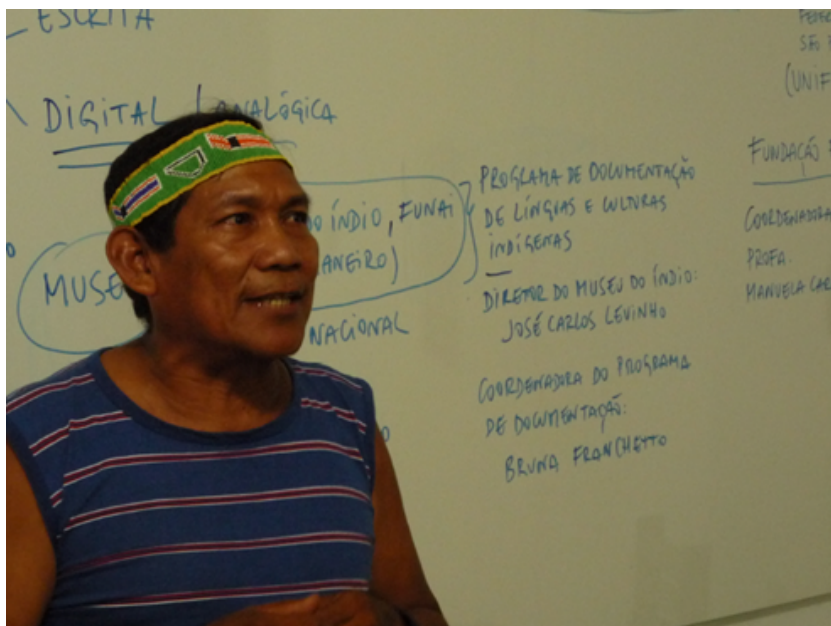 ESCRITA
DIGITAL / ANALÓGICA
DO ÍNDIO, FUNAI
ANEIRO)
MUSE
NACIONAL
PROGRAMA DE DOCUMENTAÇÃO
DE LÍNGUAS E CULTURAS
INDÍGENAS
DIRETOR DO MUSEU DO ÍNDIO:
JOSÉ CARLOS LEVINHO
COORDENADORA DO PROGRAMA
DE DOCUMENTAÇÃO:
BRUNA FRANCHETTO
FEDER
SÃO
(UNIF
FUNDAÇÃO
COORDENADORA
PROFA.
MANUELA CAR